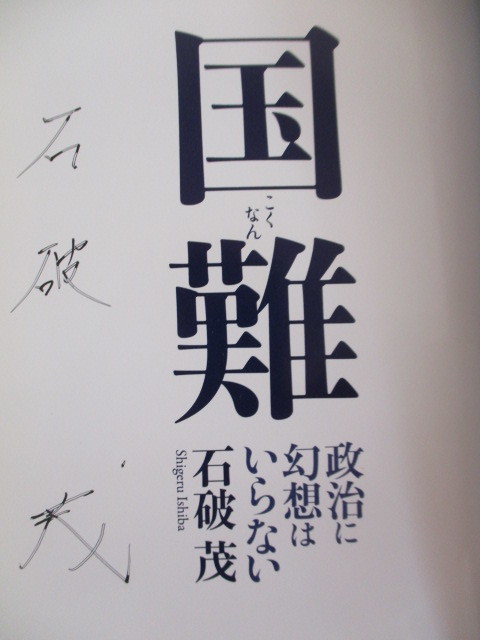 国難
こくなん
政治に
幻想は
いらない
石破 茂
Shigeru Ishiba
石破茂